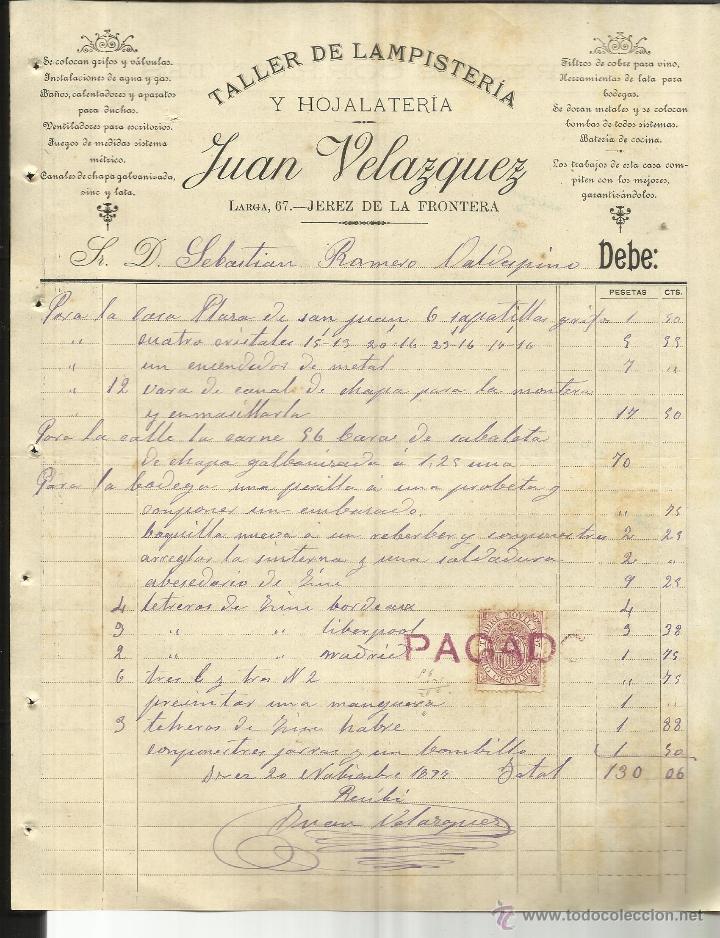 Se colocan grifos y válvulas.
Instalaciones de agua y gas.
Baños, calentadores y aparatos
para duchas.
Ventiladores para escritorios.
Juegos de medidas sistema
métrico.
Canales de chapa galvanizada,
zinc y lata.
TALLER DE LAMPISTERÍA
Y HOJALATERÍA
Juan Velazquez
LARGA, 67.—JEREZ DE LA FRONTERA
Filtros de cobre para vino,
Herramientas de lata para
bodegas.
Se doran metales y se colocan
bombas de todos sistemas.
Batería de cocina.
Los trabajos de esta casa com-
piten con los mejores,
garantizándolos.
Sr. D. Sebastian Romero Valdespino Debe:
PESETAS CTS.
Para la casa Plaza de san juan 6 sapatillas grifo 1 50
" cuatro cristales 15-13 20-16 23-16 14-16
" un encendedor de metal 7 "
" 12 vara de canal de chapa para la montera
y enmasillarla 17 50
Para la calle la carne 56 bara de
de chapa galbanizada á 1,25 una 70
Para la bodega una perilla á una probeta y
componer un embasado. " 75
boquilla nueva á un reberber y 2 25
arreglar la y una saldadura 2 "
abesedario de Zinc 9 25
4 letreros de Zinc bordeaux 4
3 " " liberpool 3 38
2 " " Madrid 1 75
6 tres C y tres N 2 " 75
presintar una manguera 1 "
3 letreros de Zinc habre 1 88
componer tres jarras y un bombillo 1 50
Jerez 20 Nobiembre Total 130 06
Recibí
Juan Velazquez
PAGADO
TIMBRE MOVIL
10 CENTIMOS
www.todocoleccion.net